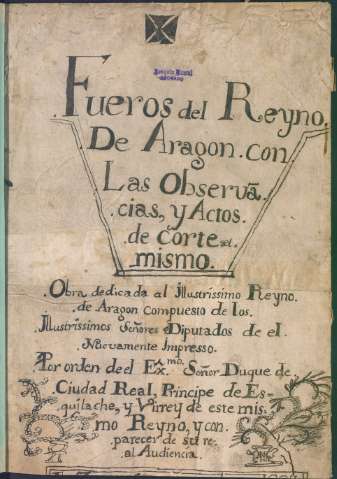 Fueros del Reyno.
De Aragon. con
Las Observā
cias, y Actos.
de Corte del.
mismo.
.Obra dedicada al Illustrissimo Reyno.
de Aragon compuesto de los.
Illustrissimos Señores Diputados de el.
Nuevamente Impresso.
Por orden del Ex.mo Señor Duque de.
Ciudad Real, Principe de Es-
quilache, y Virrey de este mis-
mo Reyno, y con.
parecer de su re.
al Audiencia.